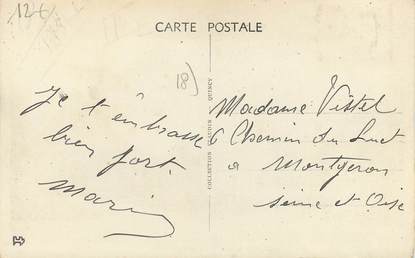 12 €
CARTE POSTALE
18)
Je t'embrasse
bien fort.
Marie
COLLECTION GAUDIN QUINCY
Madame Vistel
6 Chemin du Luet
à Montgeron
Seine et Oise